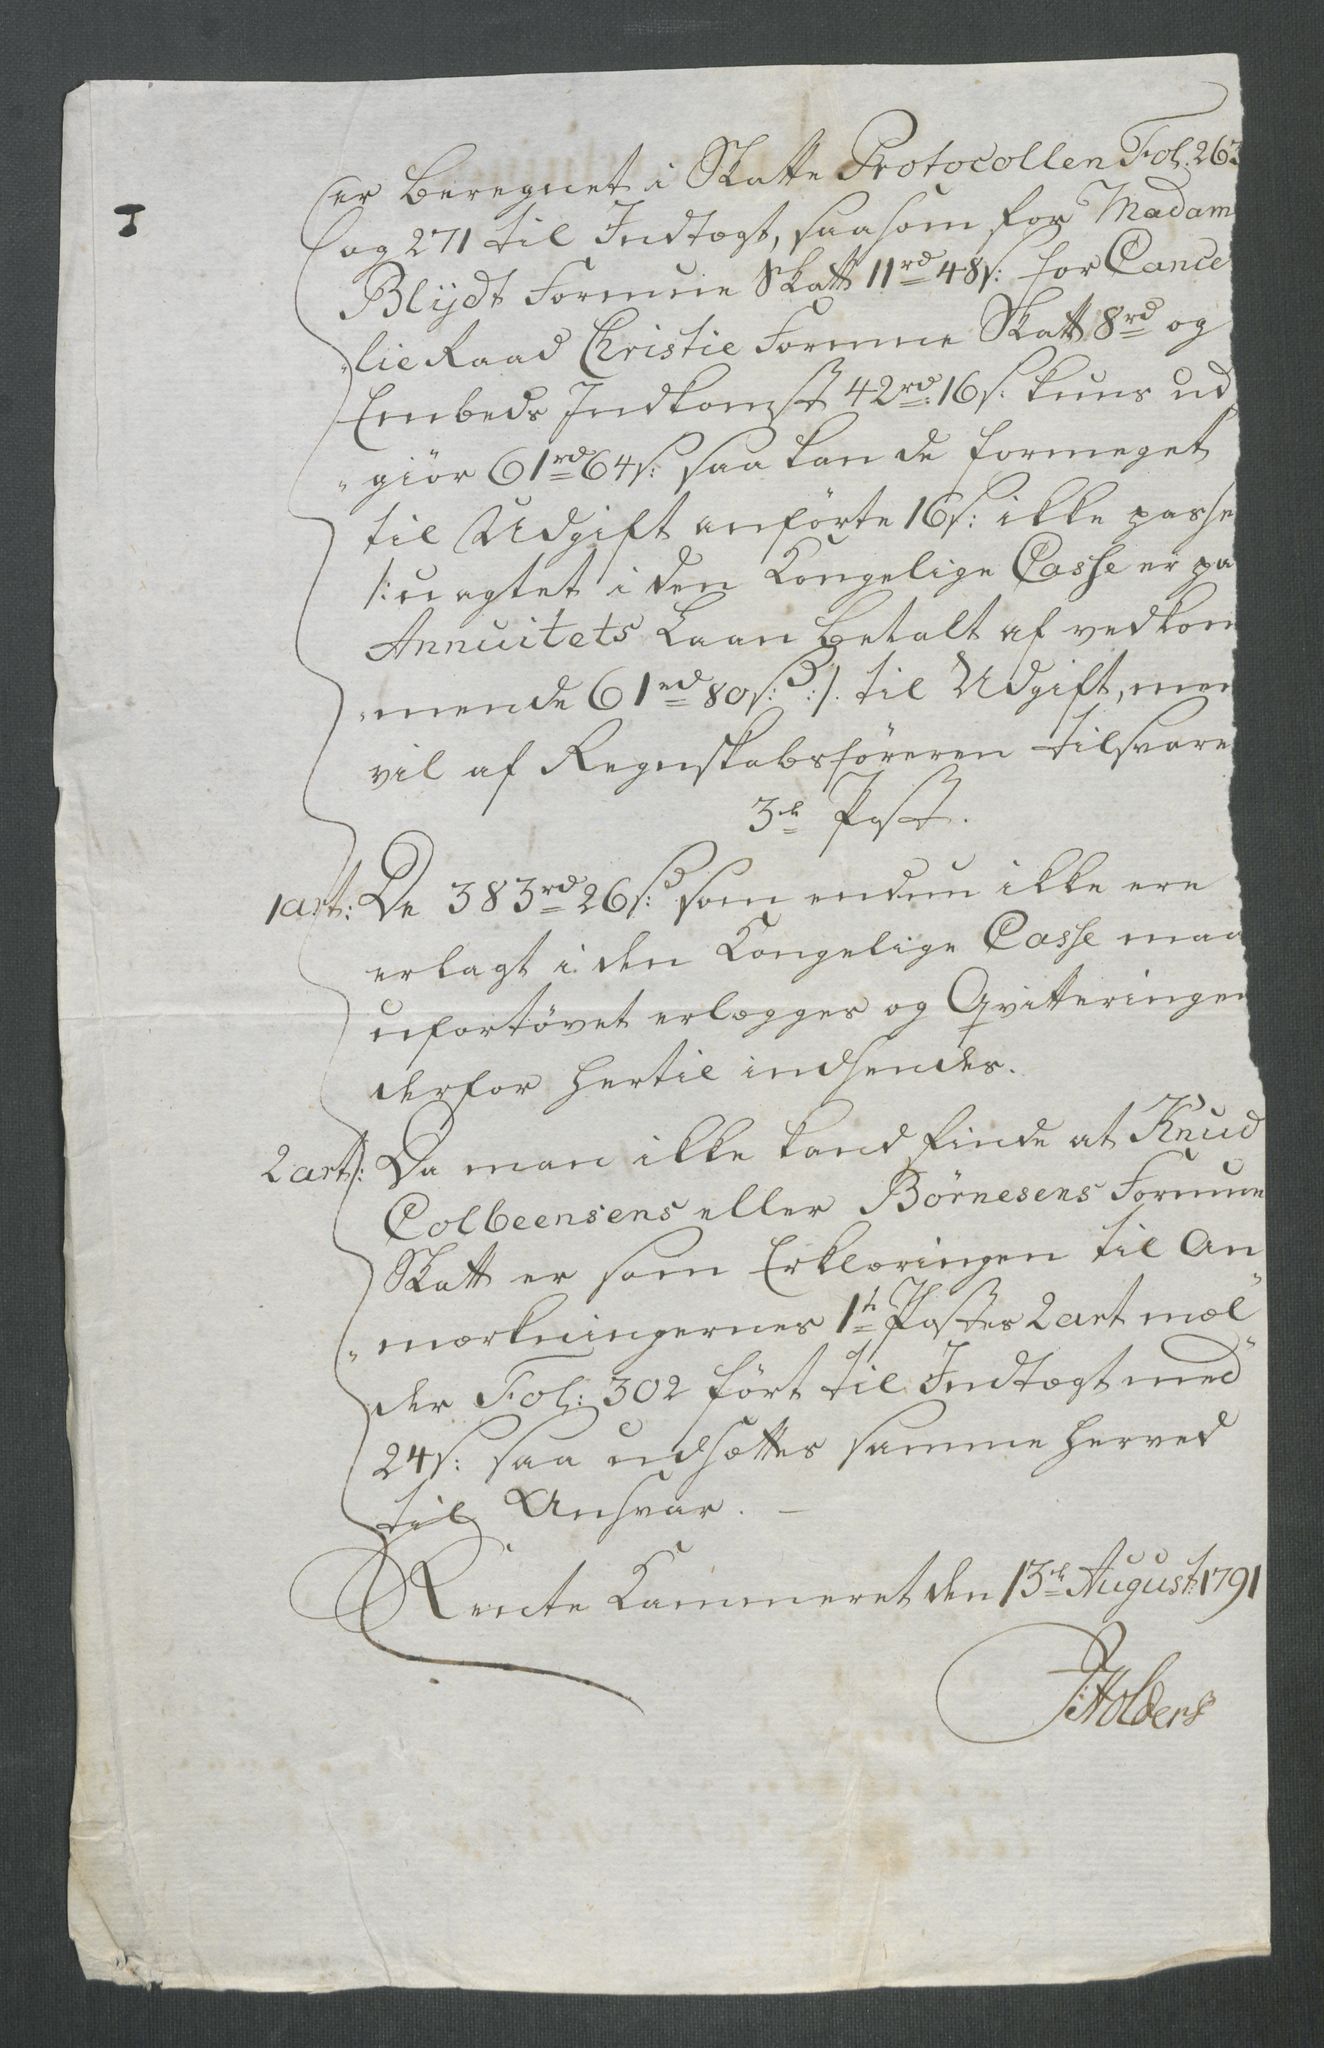 er beregnet i Skatte Protocollen Fol. 263
og 271 til Indtægt, saasom for Madam
Blijdt Formue Skatt 11rd 48s: for Cance
"lie Raad Christie Formue Skatt 8rd og
Embeds Indkomst 42rd: 16s: kuns ud
"giör 61rd 64s: saa kan de formeget
til Udgift anförte 16s: ikke passe
/: uagtet i den Kongelige Casse er pa
Annuitets Laan betalt af vedkom
"mende 61rd 80s: :/. til Udgift, men
vil af Regnskabsföreren tilsvare
3de Post.
1 art: De 383rd 26s: som endnu ikke ere
erlagt i den Kongelige Casse maa
ufortövet erlægges og Qvitteringen
derfor hertil indsendes.
2 art: Da man ikke kand finde at Knud
Colbeensens eller Börnesens Formue
Skatt er som Erklæringen til An
"mærkningernes 1te Postes 2 art mæl"
der Fol: 302 fört til Indtægt med
24s: saa udsættes samme herved
til Ansvar. —
Rente Kammeret den 13de August 1791
J: Holders